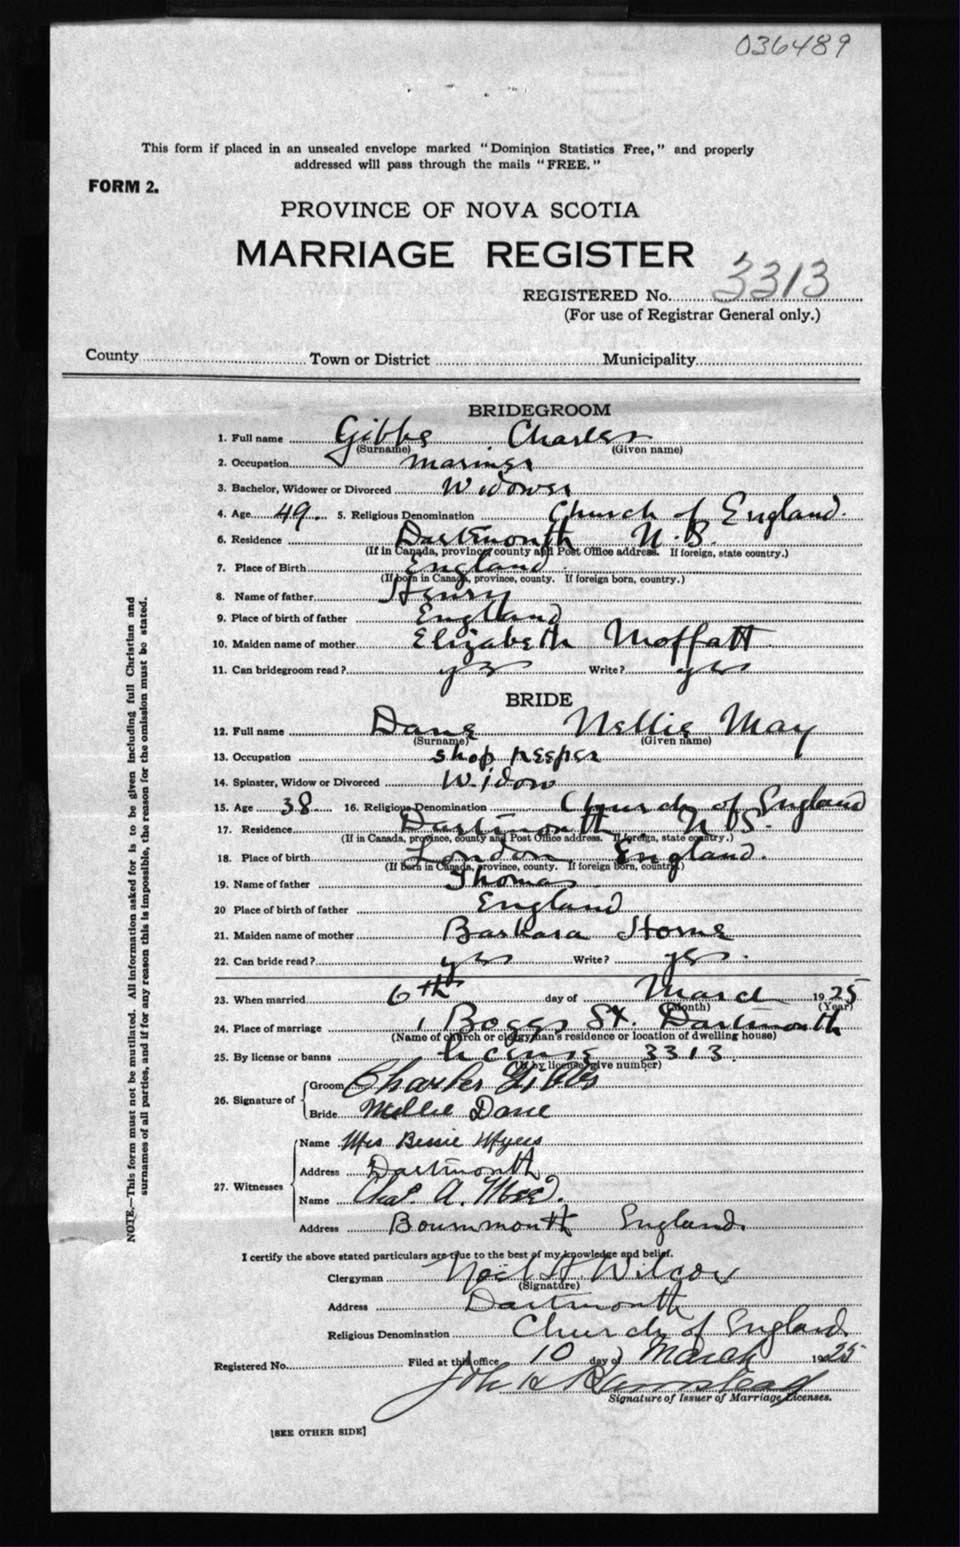 036489
This form if placed in an unsealed envelope marked "Dominion Statistics Free," and properly
addressed will pass through the mails "FREE."
FORM 2.
PROVINCE OF NOVA SCOTIA
MARRIAGE REGISTER
REGISTERED No. 3313
(For use of Registrar General only.)
County Town or District Municipality
BRIDEGROOM
1. Full name Gibbs Charles
(Surname) (Given name)
2. Occupation mariner
3. Bachelor, Widower or Divorced Widower
4. Age 49. 5. Religious Denomination Church of England.
6. Residence Dartmouth N.S.
(If in Canada, province, county and Post Office address. If foreign, state country.)
7. Place of Birth England
(If born in Canada, province, county. If foreign born, country.)
8. Name of father Henry
9. Place of birth of father England
10. Maiden name of mother Elizabeth Moffatt
11. Can bridegroom read? yes Write? yes
BRIDE
12. Full name Dane Nellie May
(Surname) (Given name)
13. Occupation shop keeper
14. Spinster, Widow or Divorced Widow
15. Age 38 16. Religious Denomination Church of England
17. Residence Dartmouth N.S.
(If in Canada, province, county and Post Office address. If foreign, state country.)
18. Place of birth London England.
(If born in Canada, province, county. If foreign born, country)
19. Name of father Thomas
20 Place of birth of father England
21. Maiden name of mother Barbara Horne
22. Can bride read? yes Write? yes.
23. When married 6th day of March 1925
(Month) (Year)
24. Place of marriage 1 Boggs St. Dartmouth
(Name of church or clergyman's residence or location of dwelling house)
25. By license or banns license 3313.
(If by license, give number)
26. Signature of Groom Charles Gibbs
Bride Nellie Dane
27. Witnesses
Name Mrs Bessie Myers
Address Dartmouth
Name Chas. A.
Address Bournmouth England.
I certify the above stated particulars are true to the best of my knowledge and belief.
Clergyman Noel H. Wilcox
(Signature)
Address Dartmouth
Religious Denomination Church of England
Registered No. Filed at this office 10 day of March 1925
Signature of Issuer of Marriage Licenses.
[SEE OTHER SIDE]
NOTE.—This form must not be mutilated. All information asked for is to be given including full Christian and
surnames of all parties, and if for any reason this is impossible, the reason for the omission must be stated.